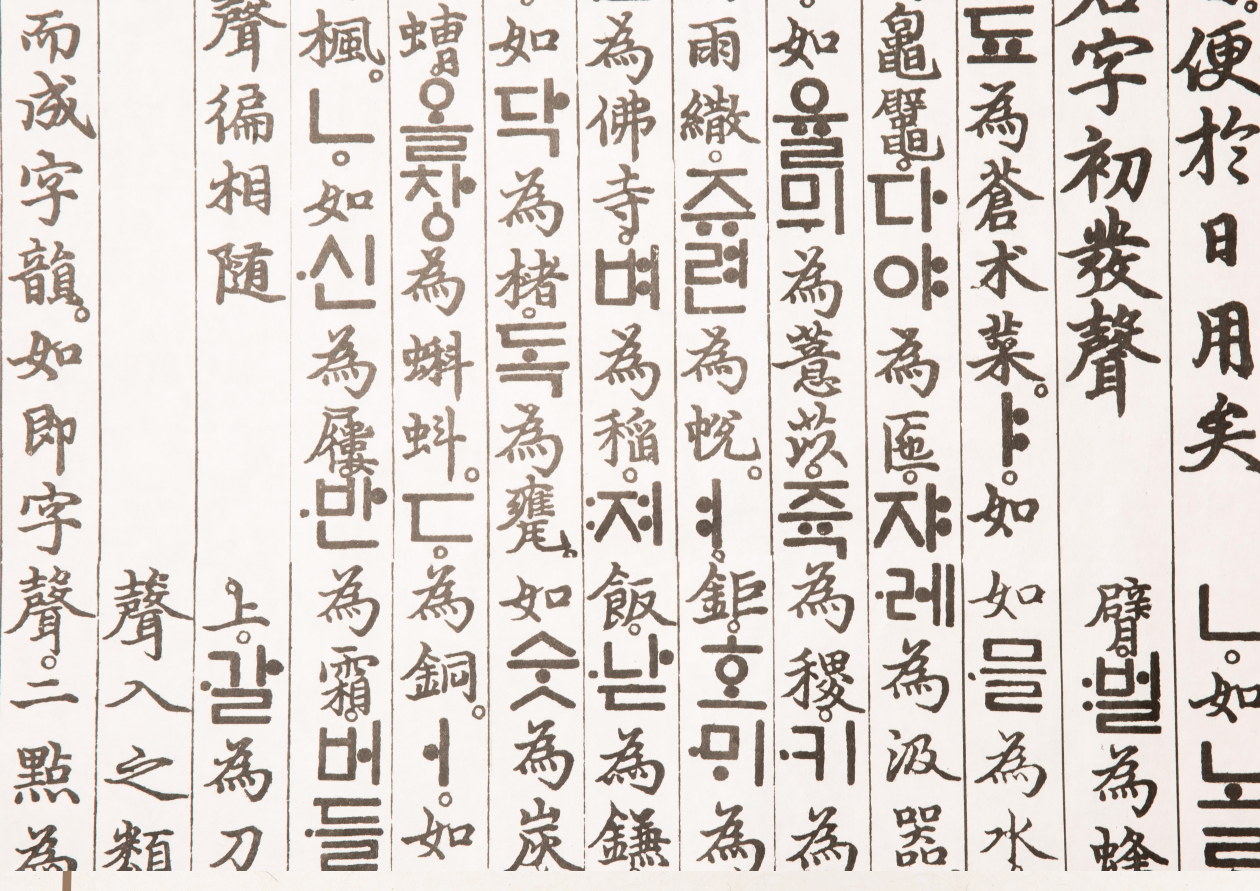 便於日用矣 ㄴ。如노로
君字初發聲 臂。벌為蜂
됴為蒼朮菜。ㅑ。如 如믈為水
龜鼊。다야為匜。쟈 레為汲器
如율믜為薏苡。쥭 為稷。키為
雨繖。쥬련為帨。ㅕ。 鉅。호ᄆᆡ為
為佛寺。벼為稻。져 飯。낟為鎌
如닥為楮。독為甕。 如숫為炭
螬。올창為蝌蚪。ㄷ。 為銅。ㅓ。如
楓。ㄴ。如신為屨。반 為霜。버들
聲徧相隨 上。갈為刀
聲入之類
而成字韻。如即字聲。二點為